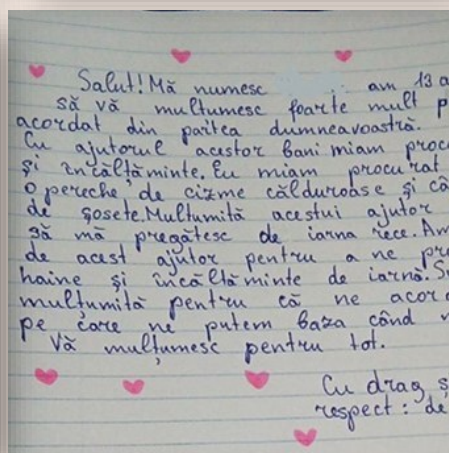 Salut! Mă numesc am 13 a
să vă multumesc foarte mult p
acordat din partea dumneavoastră.
Cu ajutorul acestor bani miam proc
și încăltăminte. Eu miam procurat
o pereche de cizme călduroase și câ
de șosete. Multumită acestui ajutor
să mă pregătesc de iarna rece. Am
de acest ajutor pentru a ne pr
haine și încăltăminte de iarnă. S
mulțumită pentru că ne acor
pe care ne putem baza când
Vă mulțumesc pentru tot.
Cu drag ș
respect: de